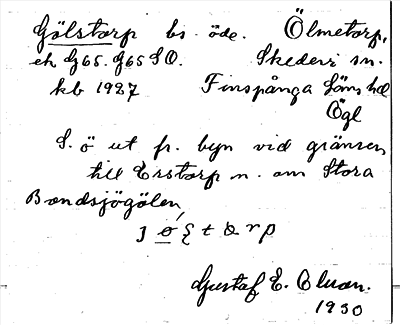 Gölstorp bs. öde. Ölmetorp,
ek G65. G65 SO. Skedevi sn.
kb 1927 Finspånga läns hd
Ögl
S. ö ut fr. byn vid gränsen
till Erstorp n. om Stora
Bondsjögölen
Gustaf E. Olsson.
1930